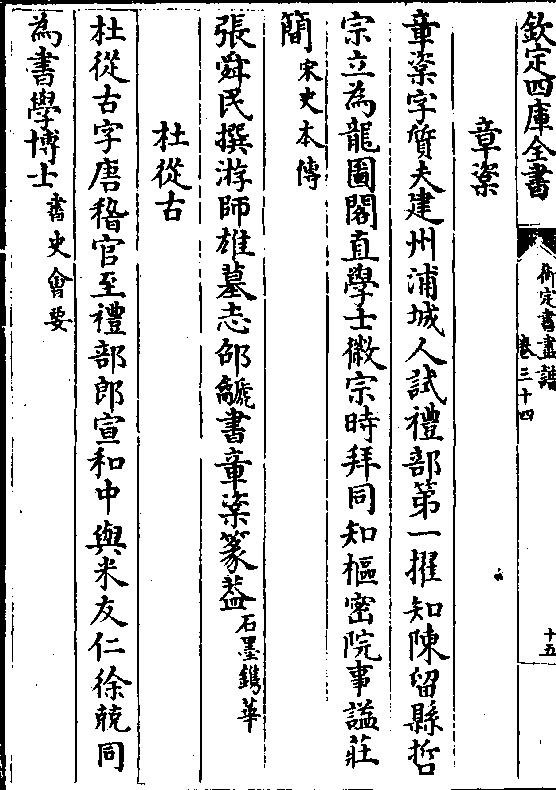 欽定四庫全書
御定書畫譜
卷三十四
十五
章楶
章楶字質夫建州浦城人試禮部第一擢知陳留縣哲
宗立為龍圖閣直學士徽宗時拜同知樞密院事謚莊
簡宋史本傳
張舜民撰游師雄墓志邵䶵書章楶篆葢石墨鐫華
杜從古
杜從古字唐稽官至禮部郎宣和中與米友仁徐兢同
為書學博士書史會要